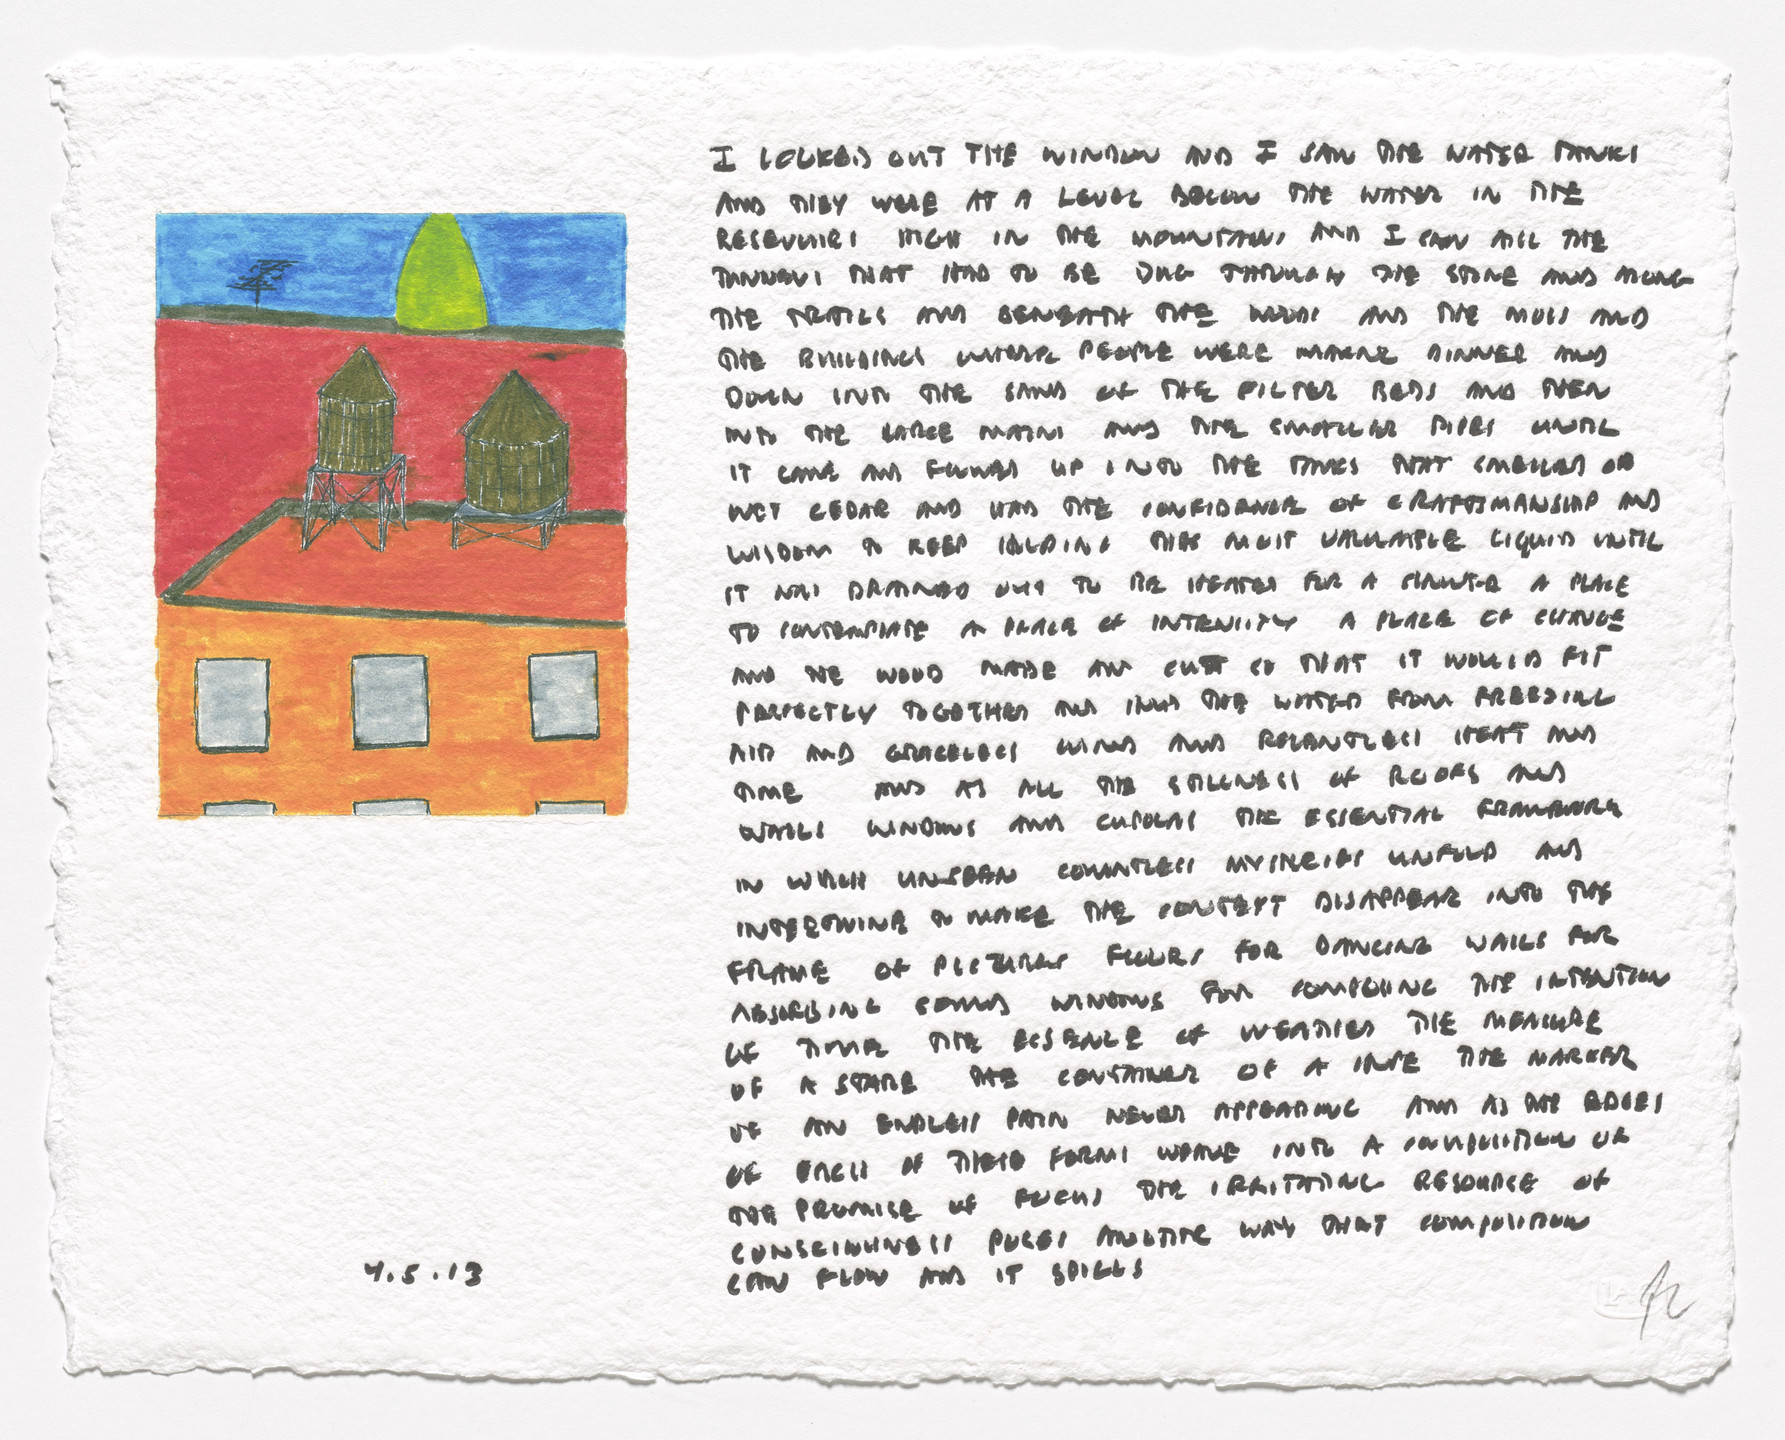 I LOOKED OUT THE WINDOW AND I SAW THE WATER TANKS
AND THEY WERE AT A LEVEL BELOW THE WATER IN THE
RESEVOIRS HIGH IN THE MOUNTAINS AND I SAW ALL THE
TUNNELS THAT HAD TO BE DUG THROUGH THE STONE AND ALONG
THE TRAILS AND BENEATH THE WOODS AND THE MOSS AND
THE BUILDINGS WHERE PEOPLE WERE MAKING DINNER AND
DOWN INTO THE SAND OF THE FILTER BEDS AND THEN
INTO THE LARGE MAINS AND THE SMALLER PIPES UNTIL
IT CAME AND FLOWED UP INTO THE TANKS THAT SMELLED OF
WET CEDAR AND HAD THE CONFIDENCE OF CRAFTSMANSHIP AND
WISDOM TO KEEP HOLDING THIS MOST VALUABLE LIQUID UNTIL
IT WAS DRAINED OUT TO BE HEATED FOR A SHOWER A PLACE
TO CONTEMPLATE A PLACE OF INTENSITY A PLACE OF CHANGE
AND THE WOOD MADE AND CUT SO THAT IT WOULD FIT
PERFECTLY TOGETHER AND HOLD THE WATER FROM FREEZING
AIR AND GRACELESS WIND AND RELENTLESS HEAT AND
TIME AND AS ALL THE STILLNESS OF ROOFS AND
WALLS WINDOWS AND CUPOLAS THE ESSENTIAL FRAMEWORK
IN WHICH UNSEEN COUNTLESS MYSTERIES UNFOLD AND
INTERTWINE TO MAKE THE CONTEXT DISAPPEAR INTO THE
FRAME OF PICTURES FLOORS FOR DANCING WALLS FOR
ABSORBING SOUND WINDOWS FOR COMPOSING THE INTENTION
OF TIME THE ESSENCE OF WEATHER THE MEASURE
OF A STARE THE CONTAINER OF A HOPE THE MARKER
OF AN ENDLESS PAIN NEVER APPEARING AND AS THE EDGES
OF EACH OF THESE FORMS WEAVE INTO A COMPOSITION OF
THE PROMISE OF FOCUS THE IRRITATING RESOURCE OF
CONSCIOUSNESS POSES ANOTHER WAY THAT COMPOSITION
CAN FLOW AND IT SPILLS
4.5.13